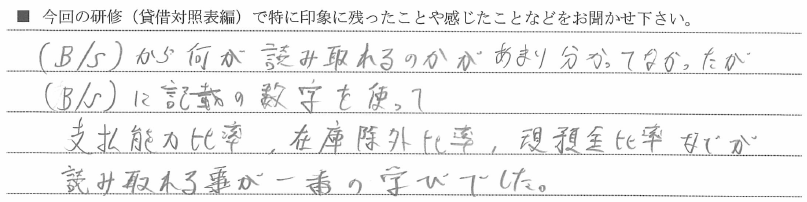 ■ 今回の研修（貸借対照表編）で特に印象に残ったことや感じたことなどをお聞かせ下さい。
(B/S)から何が読み取れるのかがあまり分かってなかったが
(B/S)に記載の数字を使って
支払能力比率，在庫除外比率，現預金比率などが
読み取れる事が一番の学びでした。